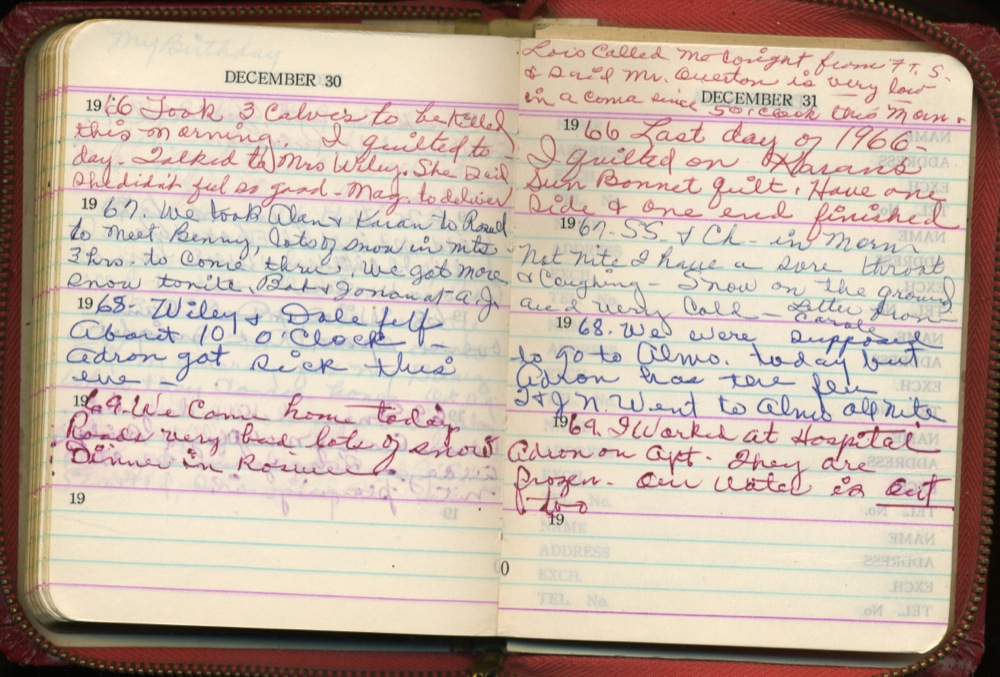 My Birthday
DECEMBER 30
1966 Took 3 Calves to be Killed
this morning. I quilted to
day. Talked to Mrs Wiley. She said
she didn't feel so good - May. to deliver
1967. We took Alan & Karan to
to meet Benny, lots of snow in
3 hrs. to come thru, We got more
snow tonite,
1968. Wiley & Dale left
About 10 O'Clock -
Adron got sick this
eve -
1969. We Came home today
Roads very bad lots of snow
Dinner in
19
Lois Called me tonight from FT. S.
& said Mr. Overton is very low
in a coma since 5 o'clock this morn.
DECEMBER 31
1966 Last day of 1966 -
I quilted on Karans
Sun Bonnet quilt. Have one
side & one end finished
1967 - SS. & Ch - in Morn
Not Nite I have a sore throat
& Coughing - Snow on the ground
and very Cold - Letter from
Carole
1968. We were supposed
to go to Almo. today but
Adron has the flu
J & J N. Went to Almo all nite
1969. I Worked at Hospital
Adron on Apt. They are
frozen - Our Water is out
too
19
NAME
ADDRESS
EXCH.
TEL. No.